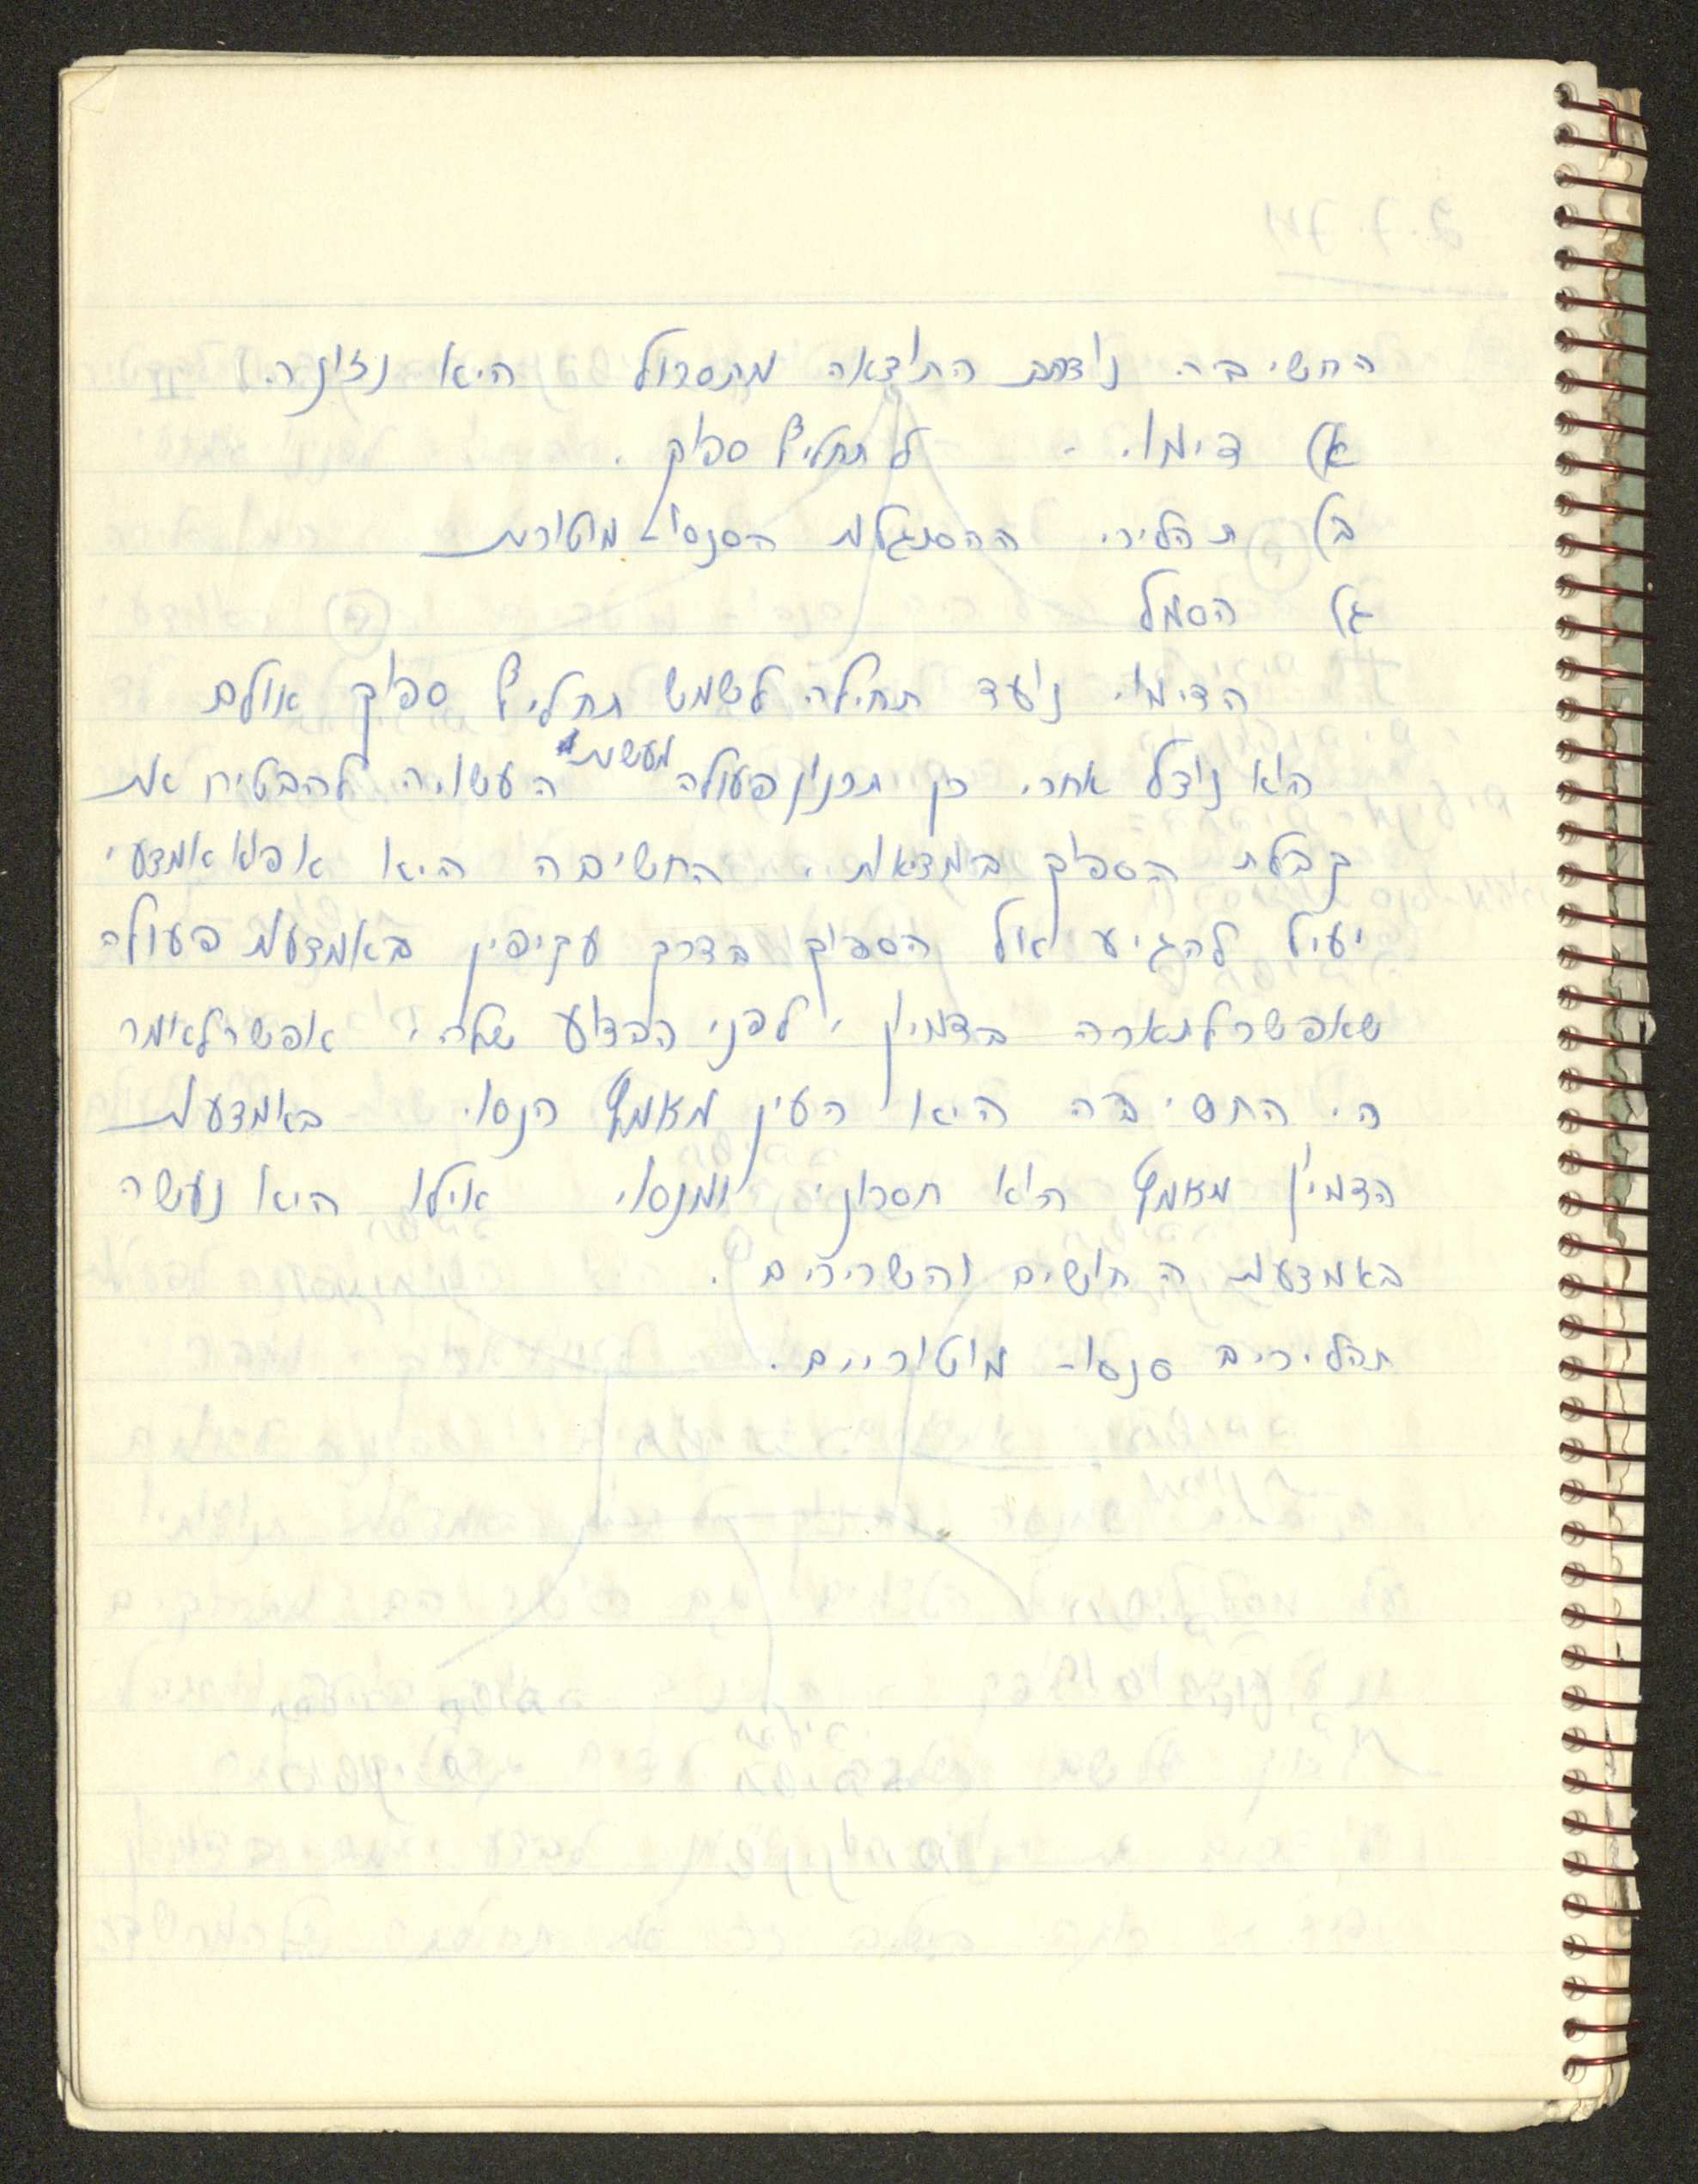 החשיבה נוצרת התוצאה מתסכול היא נזונה.
א) דימוי. - לתחליץ ספוק.
ב) תהליכי ההסתגלות הסנסו-מוטורית
ג) הסמל
הדימוי נועד תחילה לשמש תחליץ ספוק אולם
הוא נוצל אחרי כן תכנון פעולה מעשית העשויה להבטיח את
קבלת הספוק במציאות. החשיבה היא אפוא אמצעי
יעיל להגיע אל הספוק בדרך עקיפין באמצעות פעולה
שאפשר לתארה בדמיון לפני הבצוע שלה. אפשר לאמר
כי החשיבה היא העין הנסוי באמצעות
הדמיון הוא חסכוני ומנסוי אילו היא נעשה
באמצעות החושים והשרירים.
תהליכים סנסו- מוטוריים.